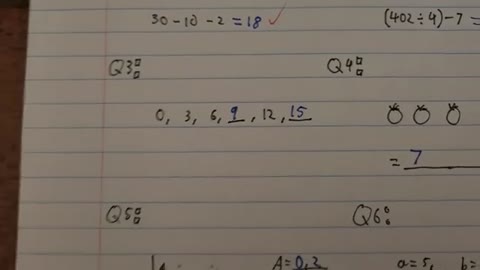 30 - 10 - 2 = 18 ✓
(402 ÷ 4) - 7 =
Q3:
Q4:
0, 3, 6, 9, 12, 15
= 7
Q5:
Q6:
A = 0,2
a = 5, b =